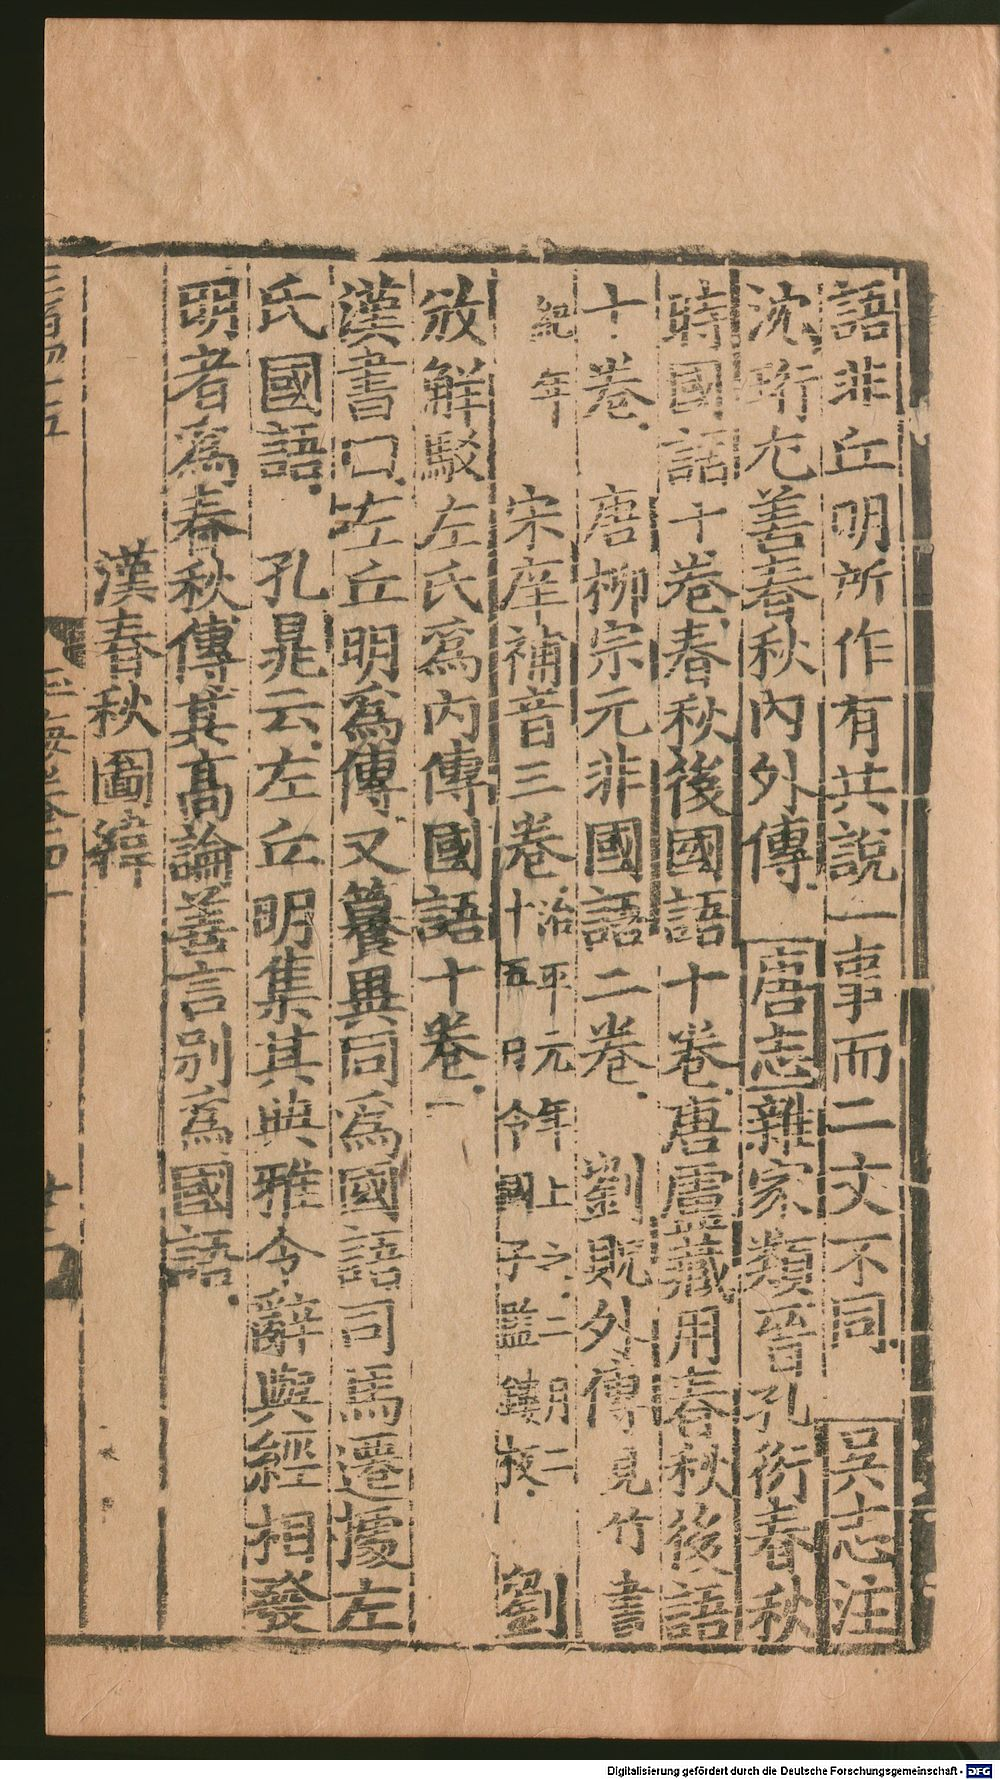 語非丘明所作有共說一事而二文不同 吳志注
沈珩尤善春秋內外傳 唐志雜家類晉孔衍春秋
時國語十卷春秋後國語十卷唐盧藏用春秋後語
十卷 唐柳宗元非國語二卷 劉貺外傳見竹書
紀年 宋庠補音三卷治平元年上之二月二
十五日令國子監鏤板 劉
攽解駁左氏爲內傳國語十卷
漢書曰左丘明爲傳又籑異同爲國語司馬遷據左
氏國語 孔晁云左丘明集其典雅令辭與經相發
明者爲春秋傳其高論善言別爲國語
漢春秋圖緯
玉海卷四十
Digitalisierung gefördert durch die Deutsche Forschungsgemeinschaft - DFG